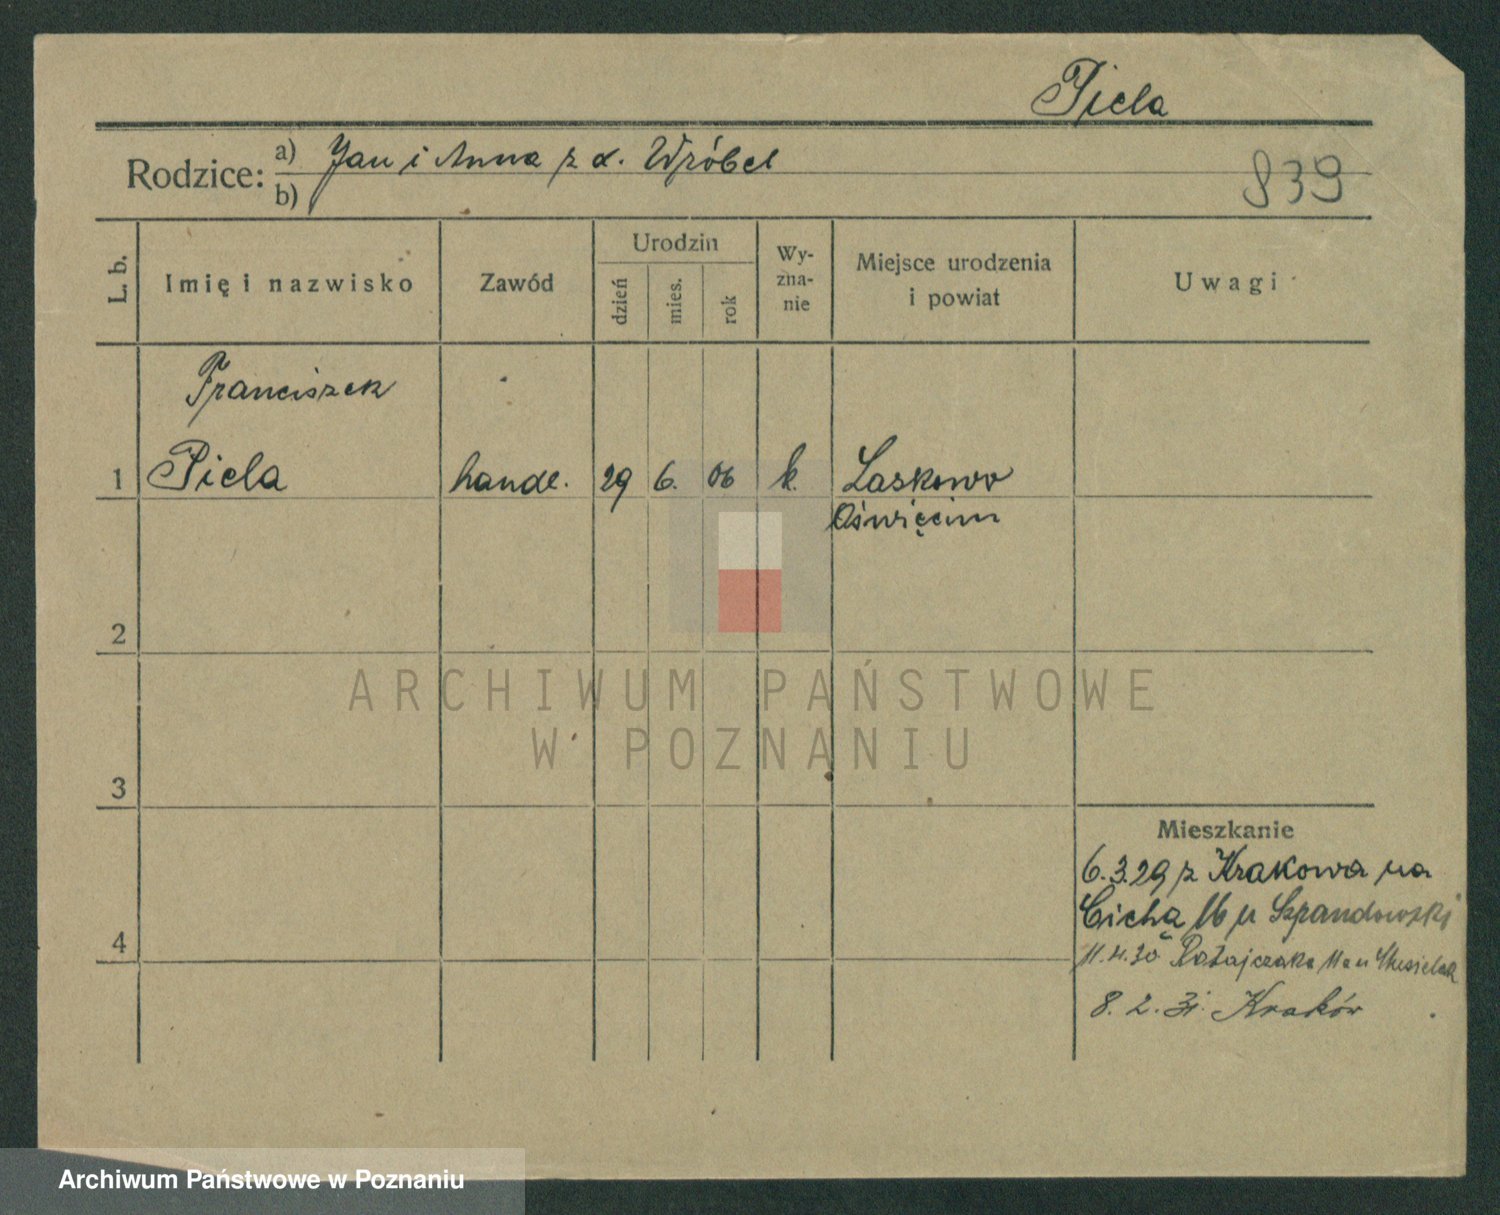 Piela
Rodzice: a) Jan i Anna z d. Wróbel
b)
839
L. b.
Imię i nazwisko
Zawód
Urodzin
dzień
mies.
rok
Wy-
zna-
nie
Miejsce urodzenia
i powiat
Uwagi
Franciszek
1 Piela handl. 29 6. 06 k. Laskowo
Oświęcim
2
3
4
Mieszkanie
6.3.29 z Krakowa na
Cichą 16 u Szpandowski
11.4.30 Ratajczaka 11a u
8. 2. 31. Kraków
ARCHIWUM PAŃSTWOWE
W POZNANIU
Archiwum Państwowe w Poznaniu